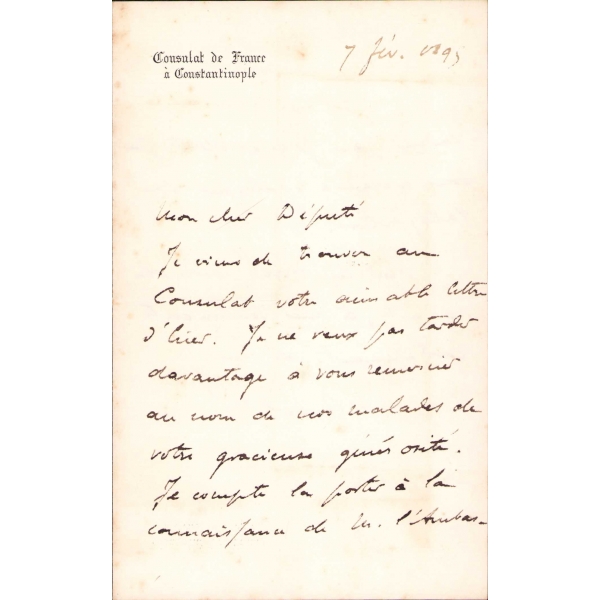 Consulat de France
à Constantinople
7 fév. 1895
Mon cher Député
Je viens de trouver au
Consulat votre aimable lettre
d'hier. Je ne veux pas tarder
davantage à vous remercier
au nom de nos malades de
votre gracieuse générosité.
Je compte la porter à la
connaissance de M. l'Ambas-